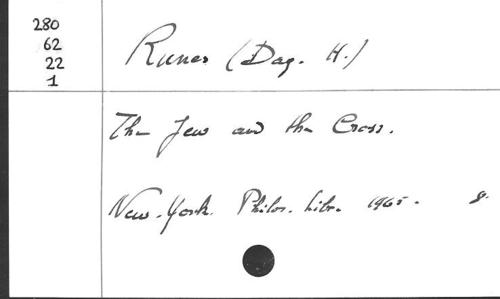 280
62
22
1
Runes (Dag. H.)
The Jew and the Cross.
New-York. Philos. Libr. 1965. 8.